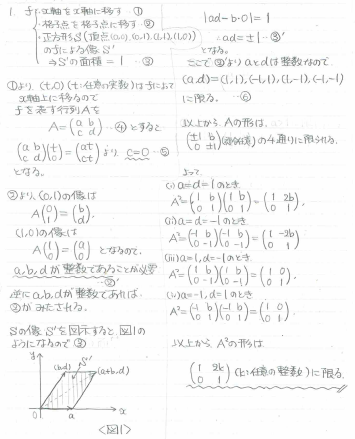 1. f: x軸を x軸に移す …①
格子点を格子点に移す …②
正方形S (頂点(0,0),(0,1),(1,1),(1,0))
のfによる像 S'
⇒S'の面積 = 1 …③
①より、(t,0) (t:任意の実数)はfによって
x軸上に移るので
fを表す行列Aを
A=(a b
c d) …④ とすると
(a b
c d)(t
0)=(at
ct) より c=0 …⑤
となる。
②より、(0,1)の像は
A(0
1)=(b
d).
(1,0)の像は
A(1
0)=(a
0) となるので、
a,b,dが整数であることが必要
…②'
逆に a,b,dが整数であれば、
②がみたされる。
Sの像 S'を図示すると 図1の
ようになるので③
y
(b,d)
S'
(a+b,d)
O
a
x
<図1>
|ad-b・0|=1
∴ad=±1 …③'
となる。
ここで②'よりaとdは整数なので
(a,d)=(1,1),(-1,1),(1,-1),(-1,-1)
に限る。 …⑥
以上から、Aの形は
(±1 b
0 ±1) の4通りに限られる.
よって
(i) a=d=1のとき
A²=(1 b
0 1)(1 b
0 1)=(1 2b
0 1).
(ii) a=d=-1のとき
A²=(-1 b
0 -1)(-1 b
0 -1)=(1 -2b
0 1).
(iii) a=1,d=-1のとき
A²=(1 b
0 -1)(1 b
0 -1)=(1 0
0 1).
(iv) a=-1,d=1のとき
A²=(-1 b
0 1)(-1 b
0 1)=(1 0
0 1).
以上から A²の形は、
(1 2k
0 1) (k:任意の整数)に限る.